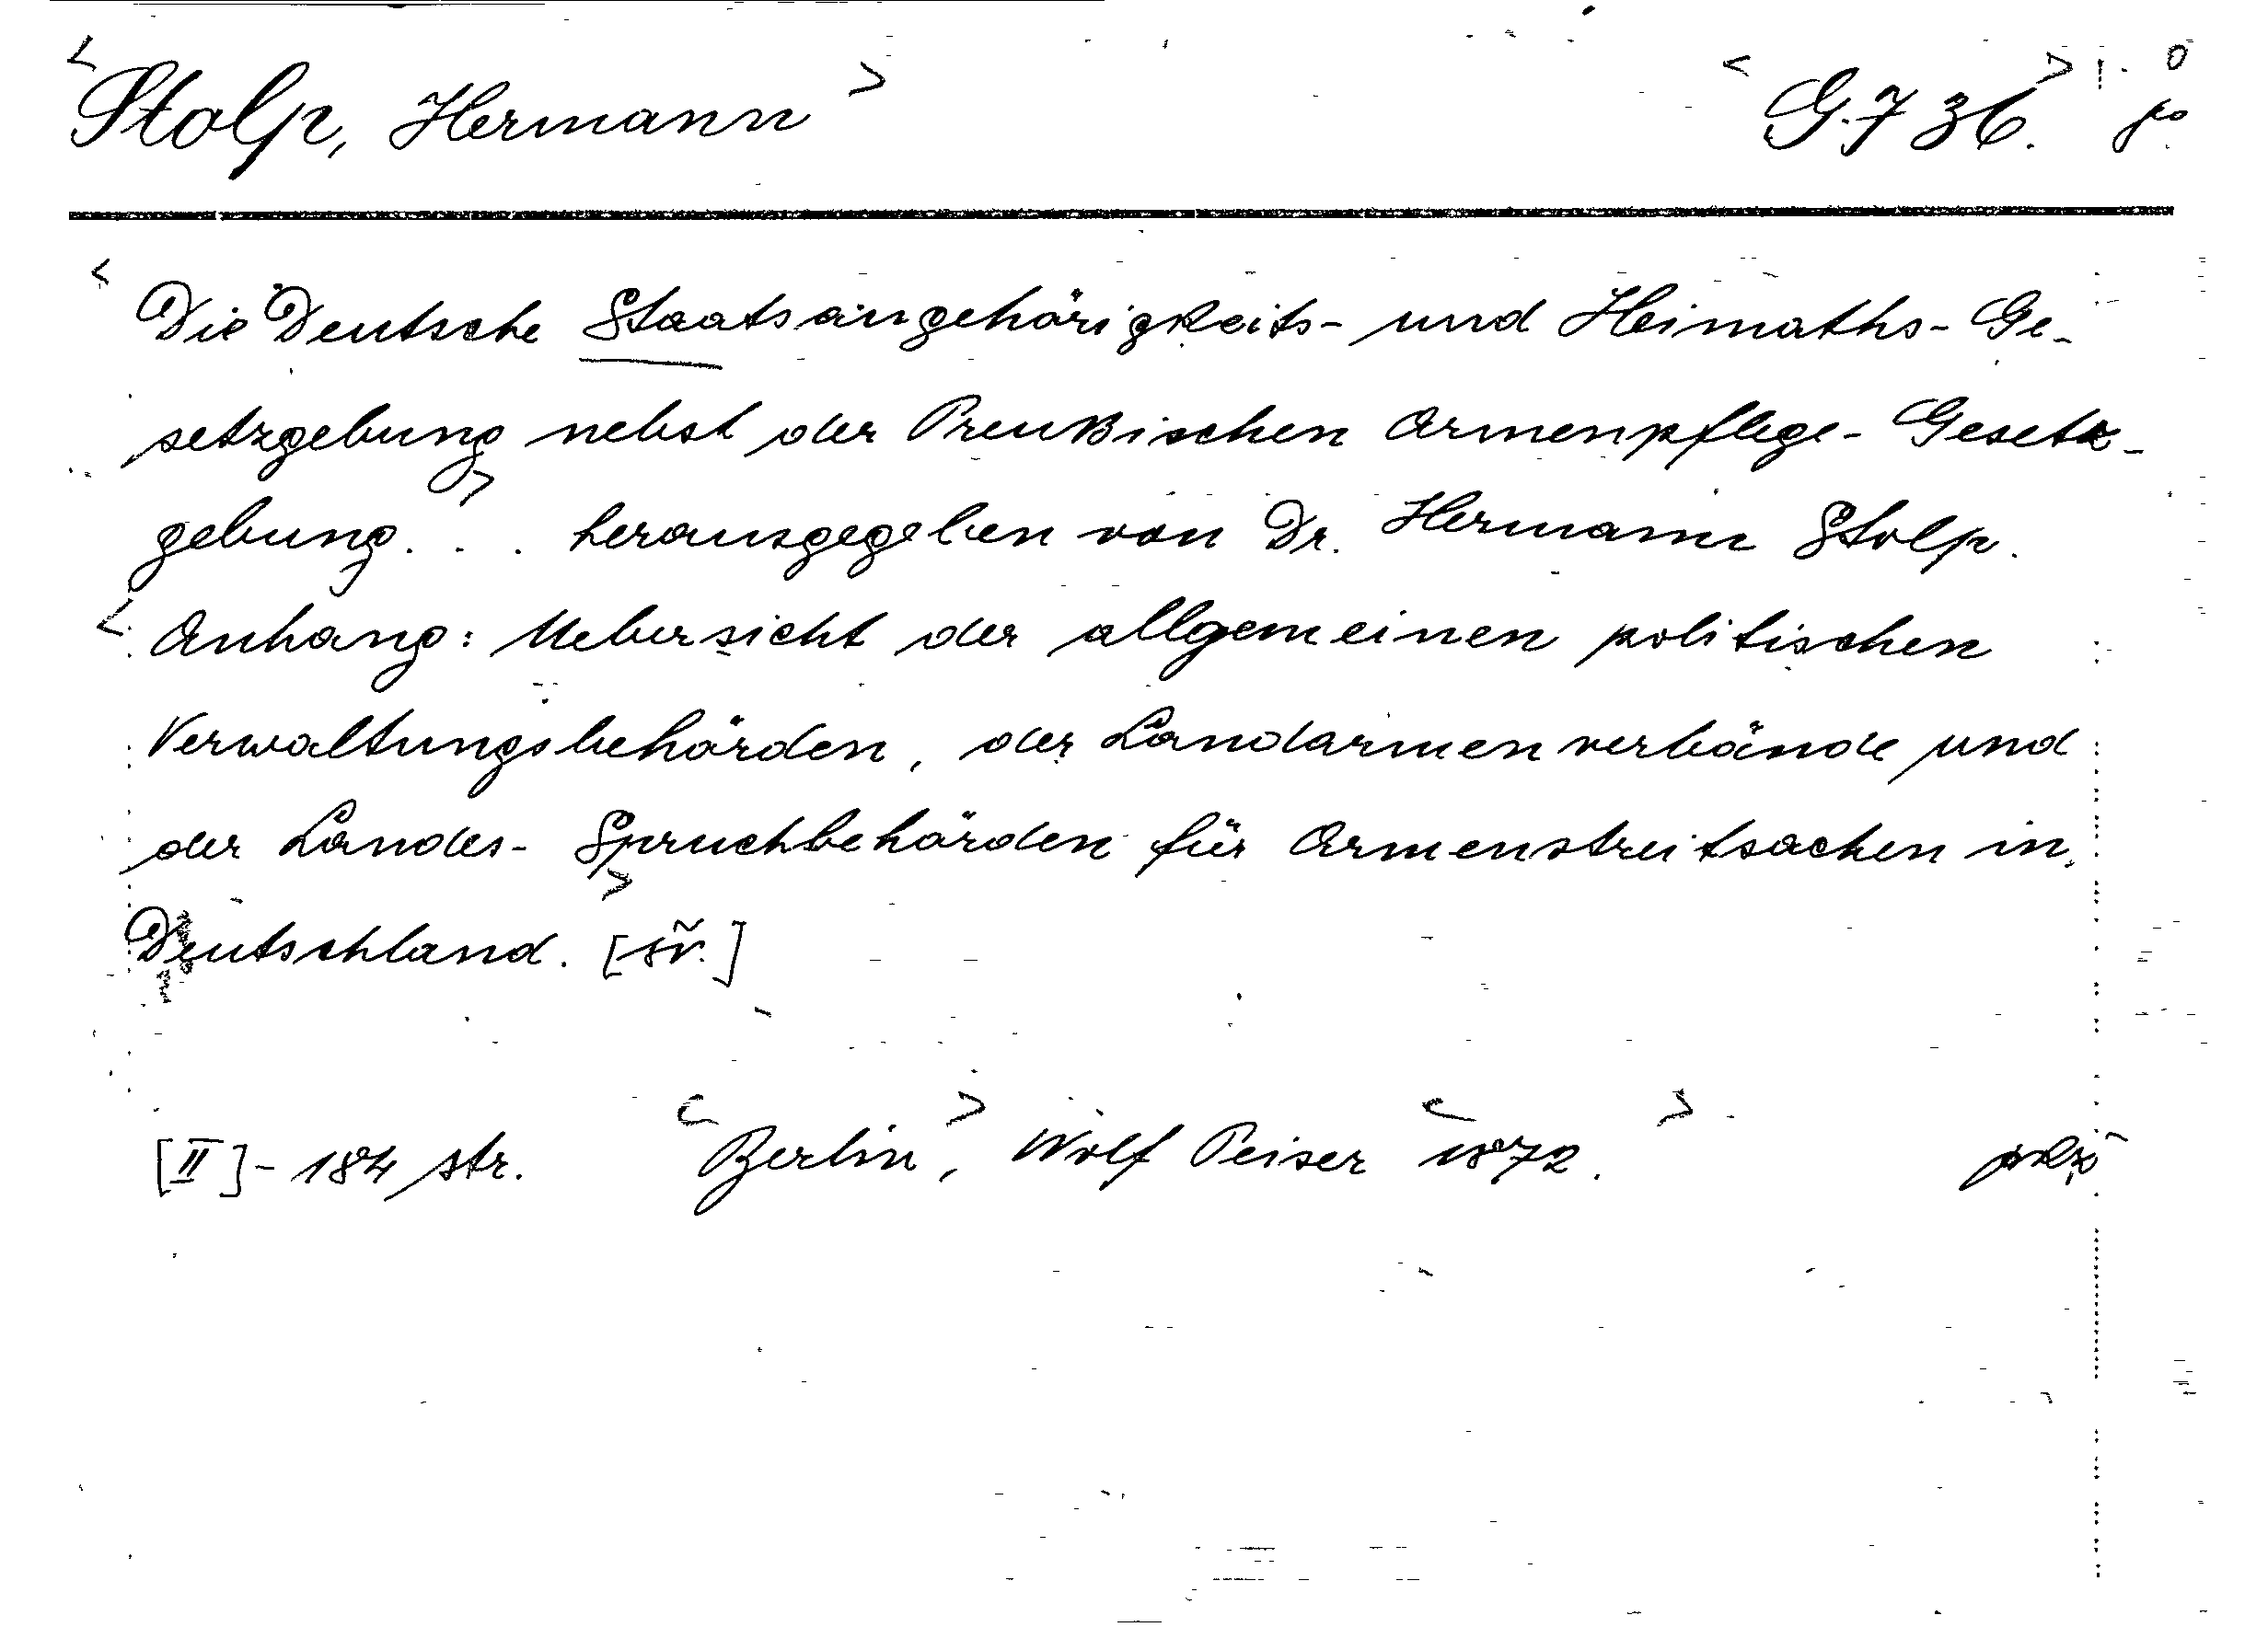 <Stolp, Hermann> <G.736.>
<Die Deutsche Staatsangehörigkeits- und Heimaths-Ge-
setzgebung nebst der Preußischen Armenpflege-Gesetz-
gebung> . . . herausgegeben von Dr. Hermann Stolp.
<Anhang: Uebersicht der allgemeinen politischen
Verwaltungsbehörden, der Landarmenverbände und
der Landes-Spruchbehörden für Armenstreitsachen in
Deutschland.>
[II]-184 str. <Berlin>, Wolf Peiser <1872.>